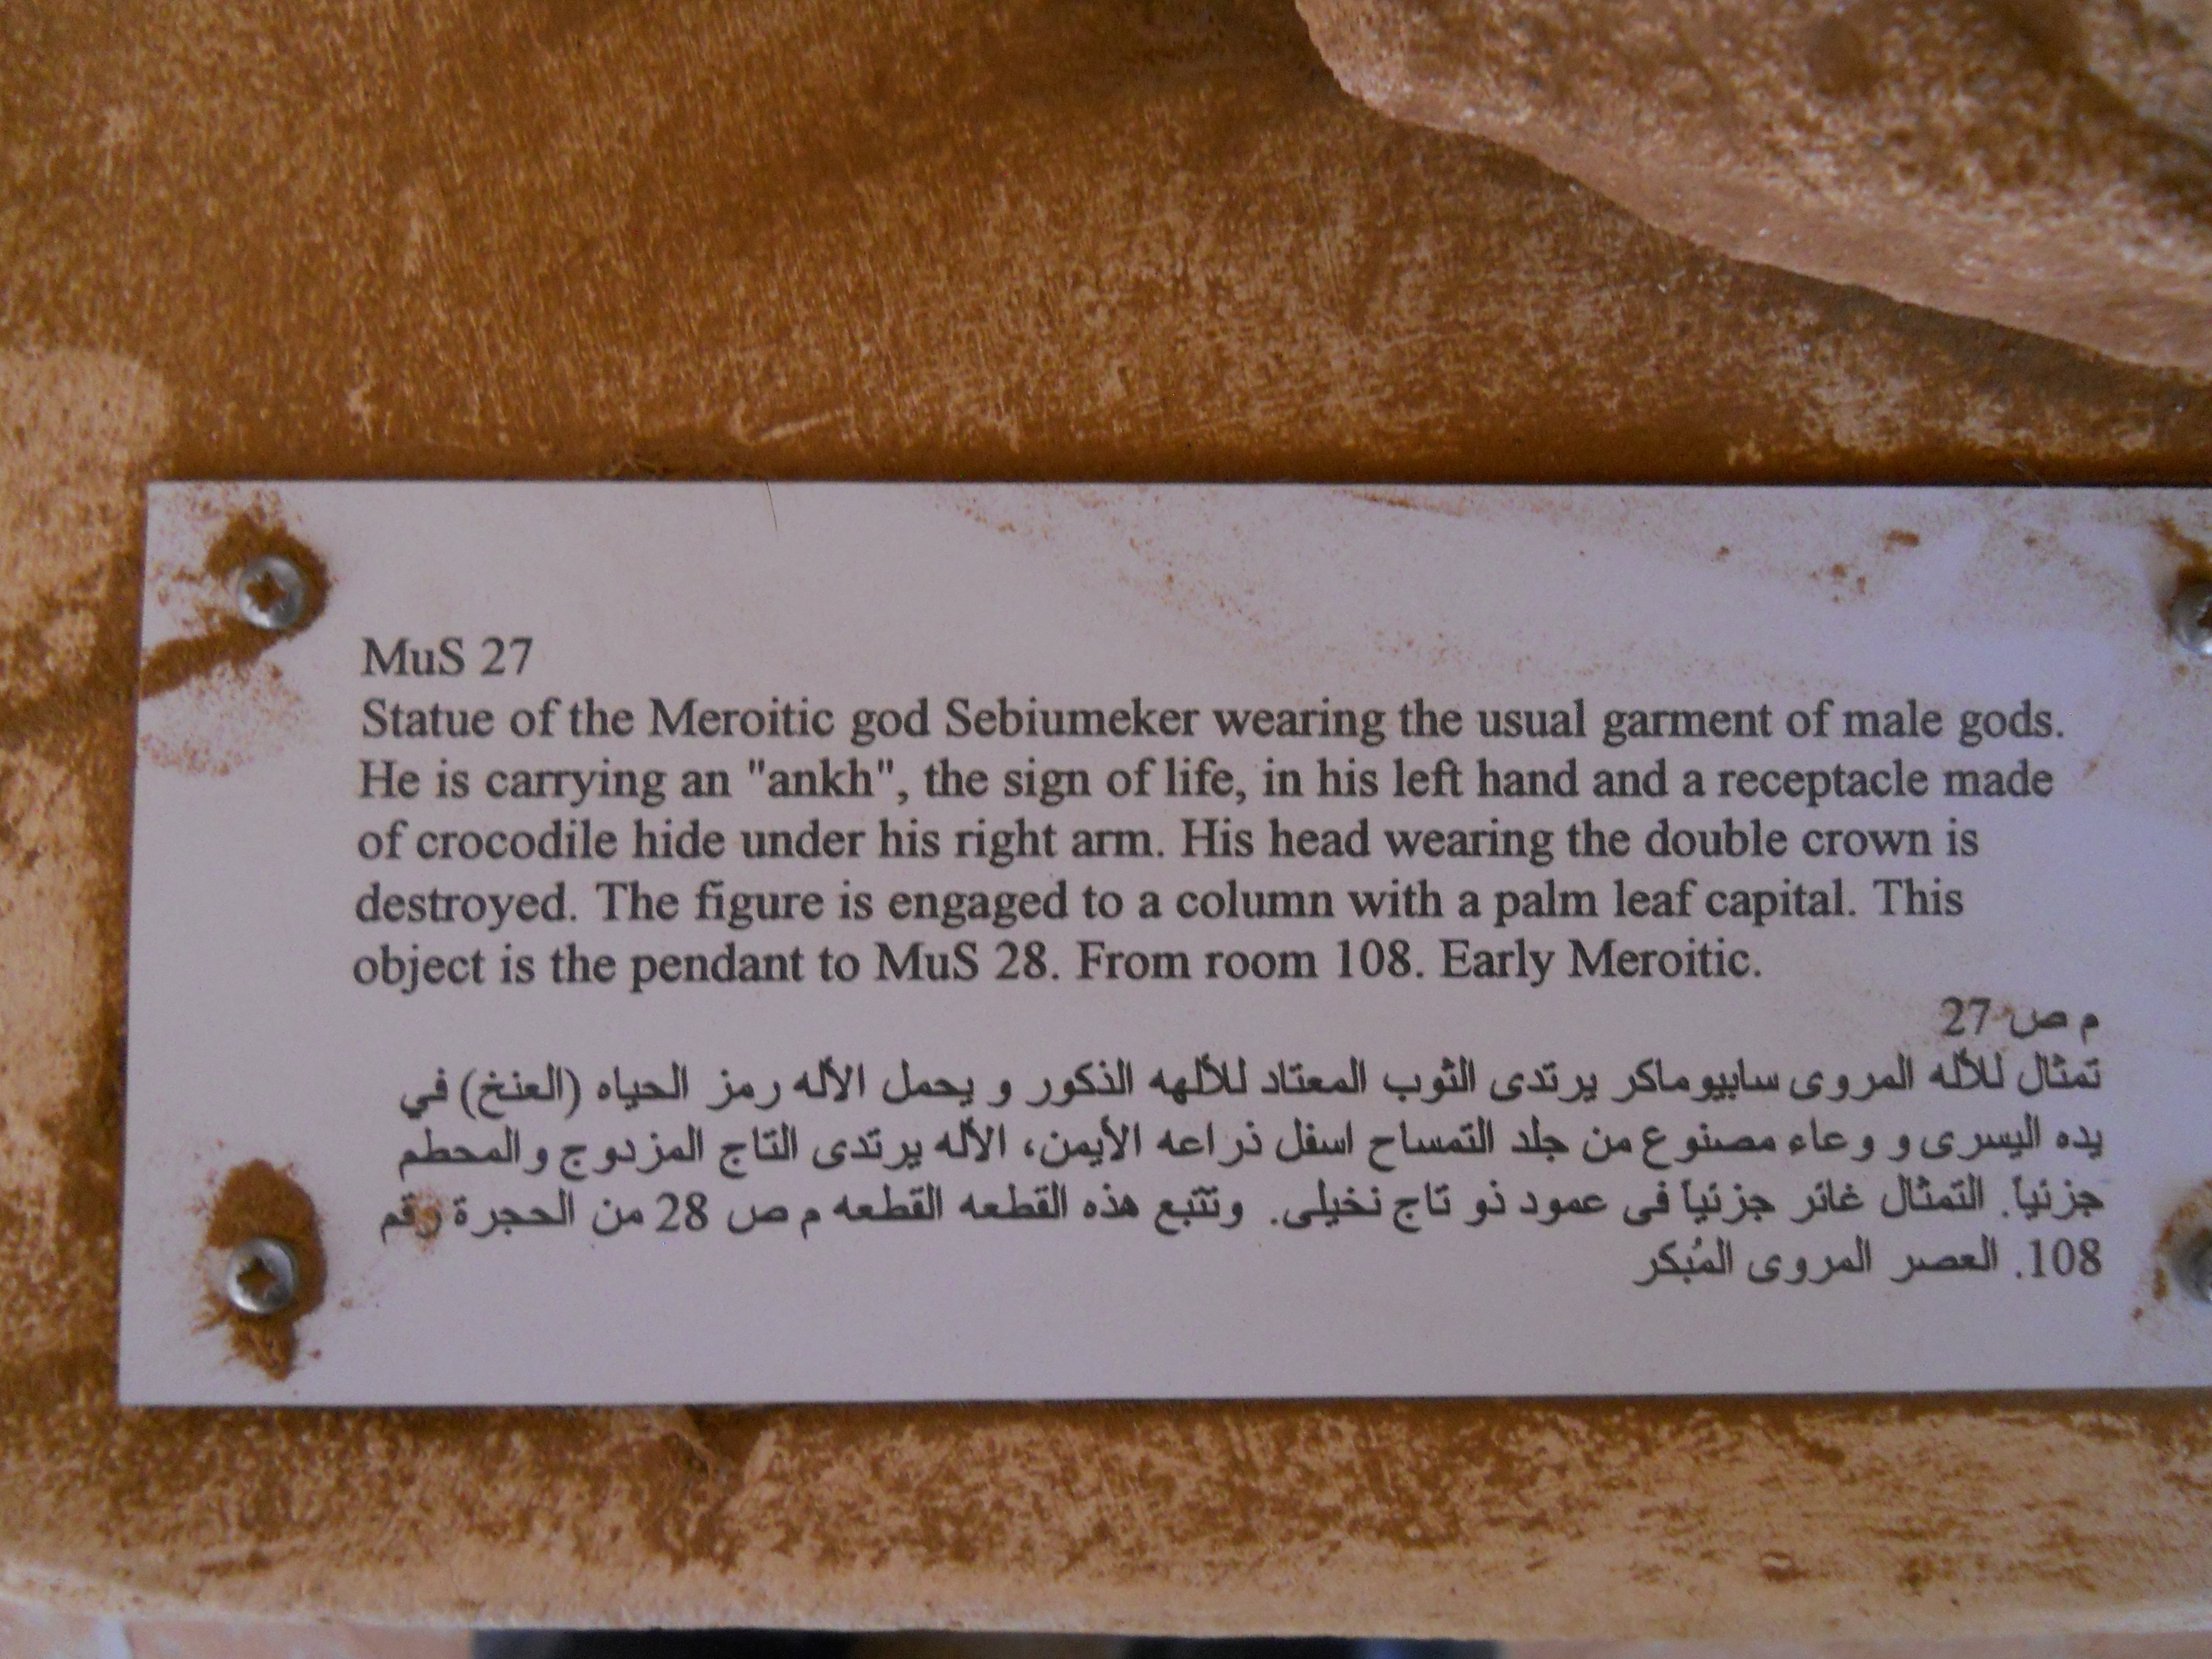 MuS 27
Statue of the Meroitic god Sebiumeker wearing the usual garment of male gods.
He is carrying an "ankh", the sign of life, in his left hand and a receptacle made
of crocodile hide under his right arm. His head wearing the double crown is
destroyed. The figure is engaged to a column with a palm leaf capital. This
object is the pendant to MuS 28. From room 108. Early Meroitic.
م ص 27
تمثال للأله المروى سابيوماكر يرتدى الثوب المعتاد للألهه الذكور و يحمل الأله رمز الحياه (العنخ) في
يده اليسرى و وعاء مصنوع من جلد التمساح اسفل ذراعه الأيمن، الأله يرتدى التاج المزدوج والمحطم
جزئياً. التمثال غائر جزئياً فى عمود ذو تاج نخيلى. وتتبع هذه القطعه القطعه م ص 28 من الحجرة رقم
108. العصر المروى المُبكر